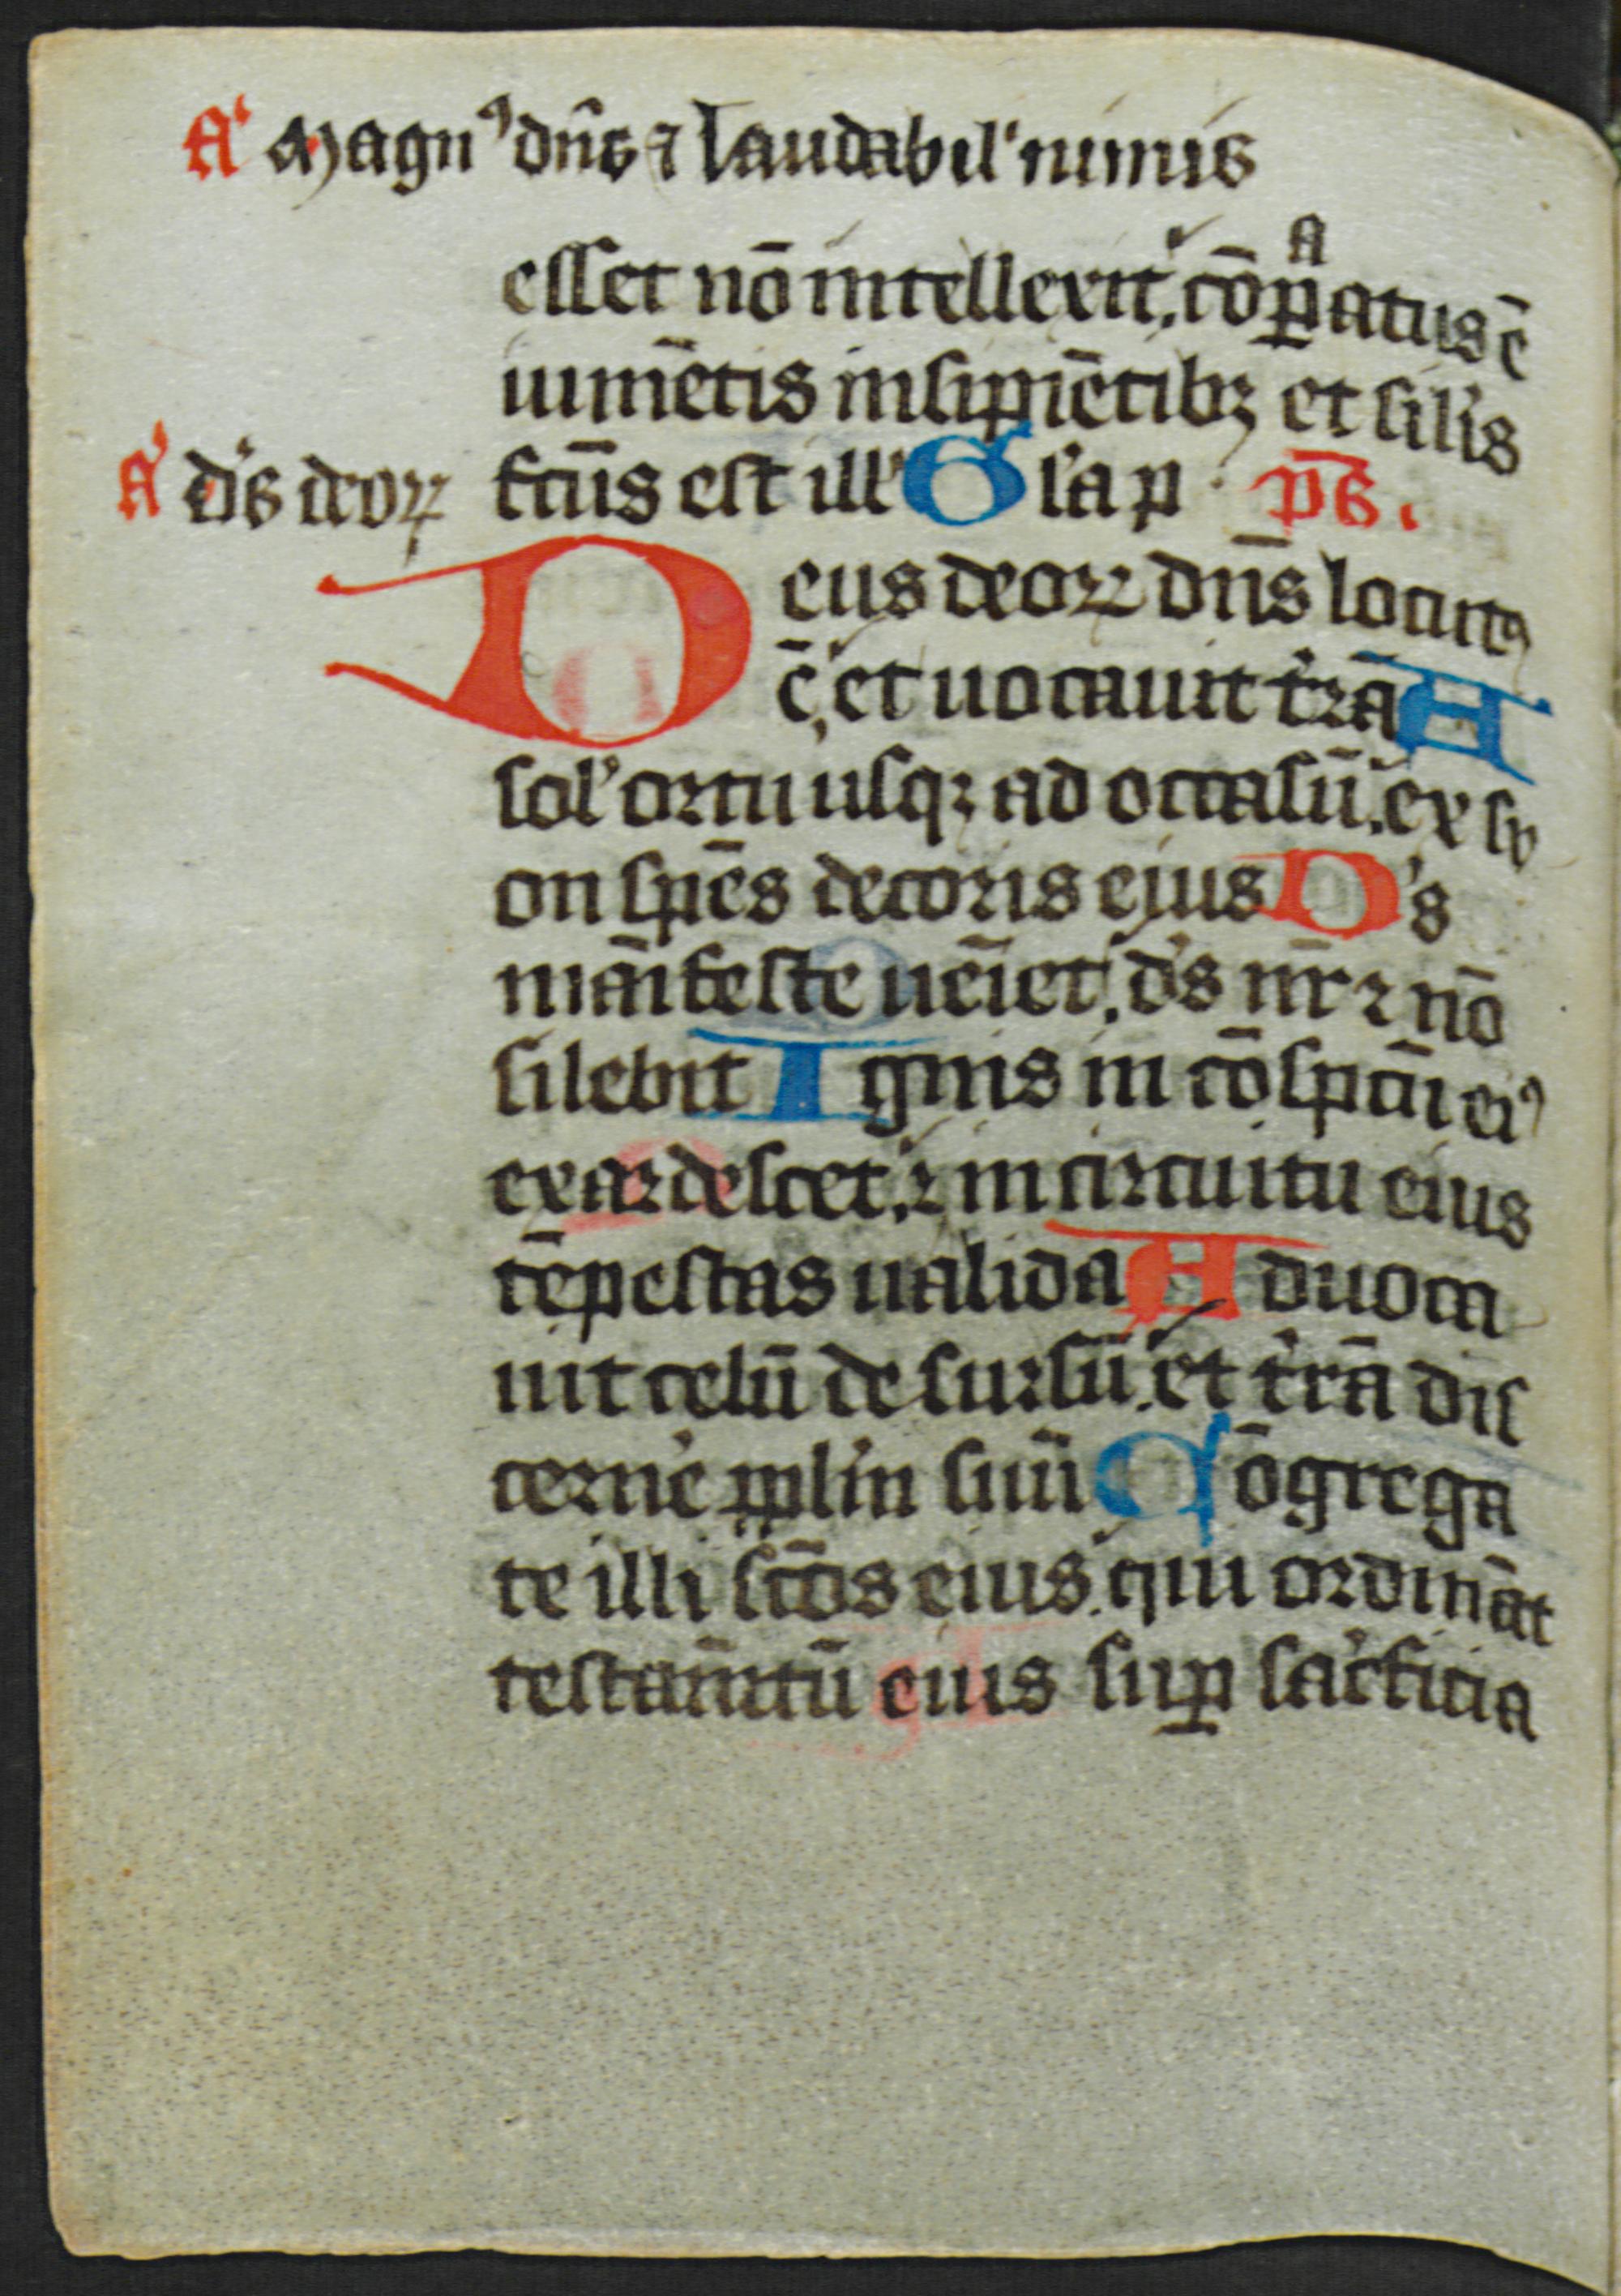 A' Magnꝰ dn̄s ⁊ laudabil' nimis
esset nō intellexit, cōp̲aatus ē
iumētis insipiētibꝫ et sil'is
A' d's deoꝝ
fcūs est ill' Gl'a p ps̄.
Deus deoꝝ dn̄s locutꝰ
ē, et uocauit t'rā A
sol' ortu usqꝫ ad occasū, ex sy
on spēs decoris ejus D's
māifeste uēiet, d's nr̄ ⁊ nō
silebit Ignis in cōspcū eiꝰ
exardescet, ⁊ in circuitu eius
tēpestas ualida Aduoca
uit celū de sursū. et t'rā dis
cern'e ppl'm suū Cōgrega
te illi scōs eius. qui ordināt
testam̄tū eius sup̲ sac'ficia